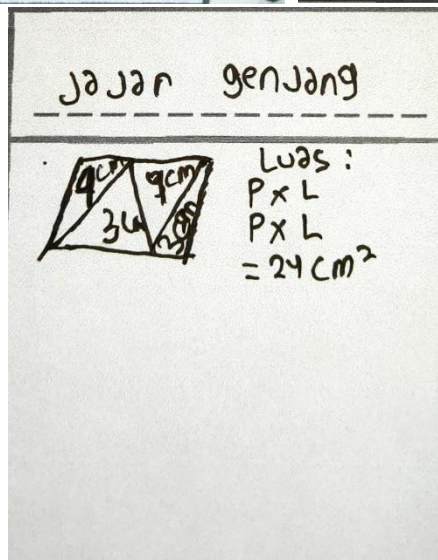 Jajar genjang
4cm 9cm
3cm
Luas :
P x L
P x L
= 24 cm²